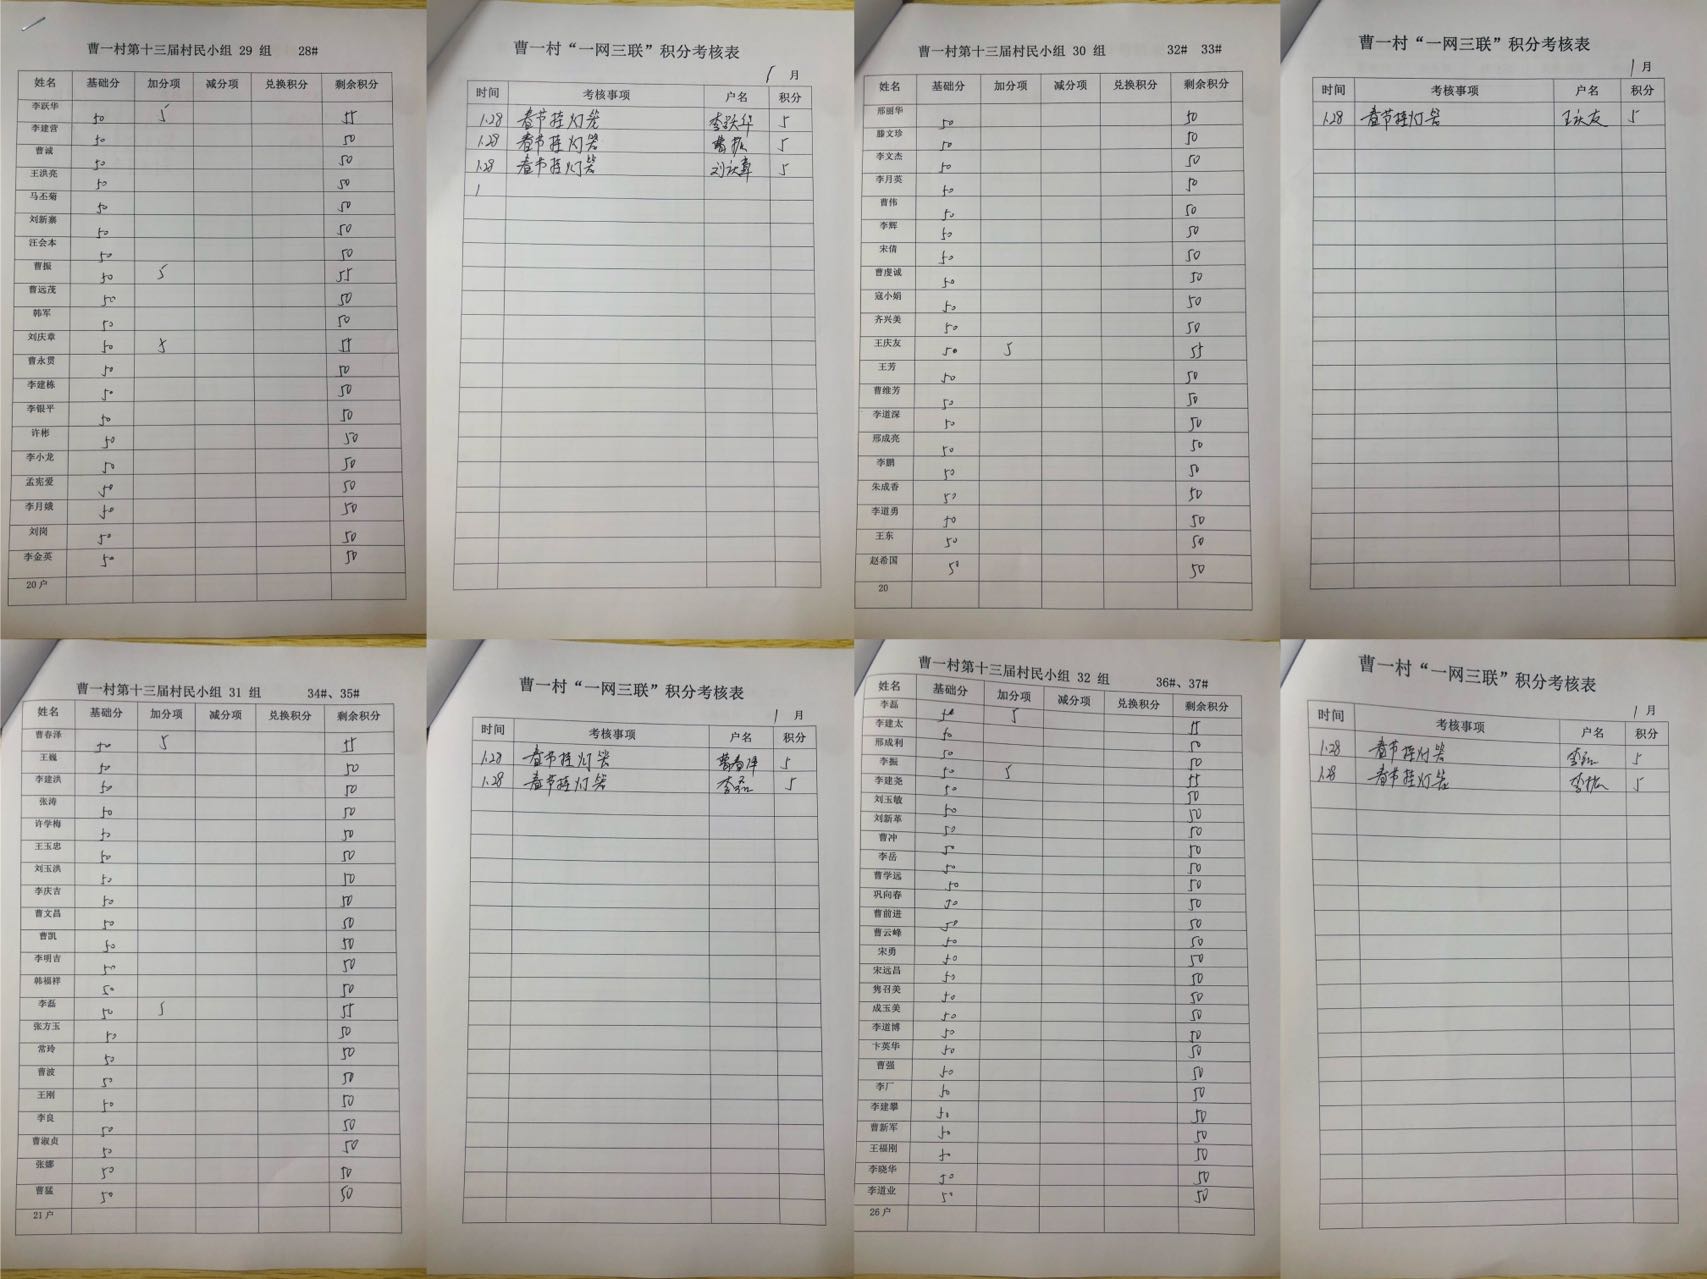 曹一村第十三届村民小组 29 组 28#
姓名 基础分 加分项 减分项 兑换积分 剩余积分
李跃华 50 5 55
李建营 50 50
曹诚 50 50
王洪亮 50 50
马丕菊 50 50
刘新寨 50 50
汪会本 50 50
曹振 50 5 55
曹远茂 50 50
韩军 50 50
刘庆章 50 5 55
曹永贯 50 50
李建栋 50 50
李银平 50 50
许彬 50 50
李小龙 50 50
孟宪爱 50 50
李月娥 50 50
刘岗 50 50
李金英 50 50
20户
曹一村“一网三联”积分考核表
1 月
时间 考核事项 户名 积分
1.28 春节挂灯笼 李跃华 5
1.28 春节挂灯笼 曹振 5
1.28 春节挂灯笼 刘庆章 5
1
曹一村第十三届村民小组 30 组 32# 33#
姓名 基础分 加分项 减分项 兑换积分 剩余积分
邢丽华 50 50
滕文珍 50 50
李文杰 50 50
李月英 50 50
曹伟 50 50
李辉 50 50
宋倩 50 50
曹虔诚 50 50
寇小娟 50 50
齐兴美 50 50
王庆友 50 5 55
王芳 50 50
曹维芳 50 50
李道深 50 50
邢成亮 50 50
李鹏 50 50
朱成香 50 50
李道勇 50 50
王东 50 50
赵希国 50 50
20
曹一村“一网三联”积分考核表
1 月
时间 考核事项 户名 积分
1.28 春节挂灯笼 王庆友 5
曹一村第十三届村民小组 31 组 34#、35#
姓名 基础分 加分项 减分项 兑换积分 剩余积分
曹春泽 50 5 55
王巍 50 50
李建洪 50 50
张涛 50 50
许学梅 50 50
王玉忠 50 50
刘玉洪 50 50
李庆吉 50 50
曹文昌 50 50
曹凯 50 50
李明吉 50 50
韩福祥 50 50
李磊 50 5 55
张方玉 50 50
常玲 50 50
曹波 50 50
王刚 50 50
李良 50 50
曹淑贞 50 50
张娜 50 50
曹猛 50 50
21户
曹一村“一网三联”积分考核表
1 月
时间 考核事项 户名 积分
1.28 春节挂灯笼 曹春泽 5
1.28 春节挂灯笼 李磊 5
曹一村第十三届村民小组 32 组 36#、37#
姓名 基础分 加分项 减分项 兑换积分 剩余积分
李磊 50 5 55
李建太 50 50
邢成利 50 50
李振 50 5 55
李建尧 50 50
刘玉敏 50 50
刘新革 50 50
曹冲 50 50
李岳 50 50
曹学远 50 50
巩向春 50 50
曹前进 50 50
曹云峰 50 50
宋勇 50 50
宋远昌 50 50
隽召美 50 50
成玉美 50 50
李道博 50 50
卞英华 50 50
曹强 50 50
李厂 50 50
李建攀 50 50
曹新军 50 50
王福刚 50 50
李晓华 50 50
李道业 50 50
26户
曹一村“一网三联”积分考核表
1 月
时间 考核事项 户名 积分
1.28 春节挂灯笼 李磊 5
1.28 春节挂灯笼 李振 5